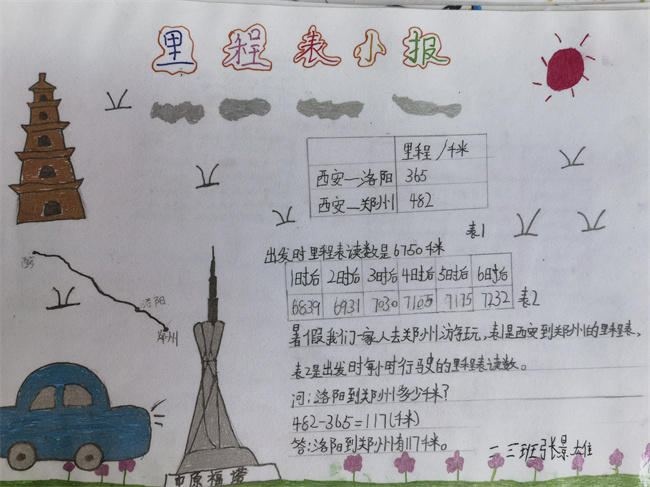 里程表小报
里程/千米
西安—洛阳 365
西安—郑州 482
表1
出发时里程表读数是6750千米
1时后 2时后 3时后 4时后 5时后 6时后
6839 6931 7030 7105 7175 7232 表2
洛阳
郑州
暑假我们一家人去郑州游玩,表1是西安到郑州的里程表,
表2是出发时每小时行驶的里程表读数。
问:洛阳到郑州多少千米?
482-365=117(千米)
答:洛阳到郑州有117千米。
中原福塔